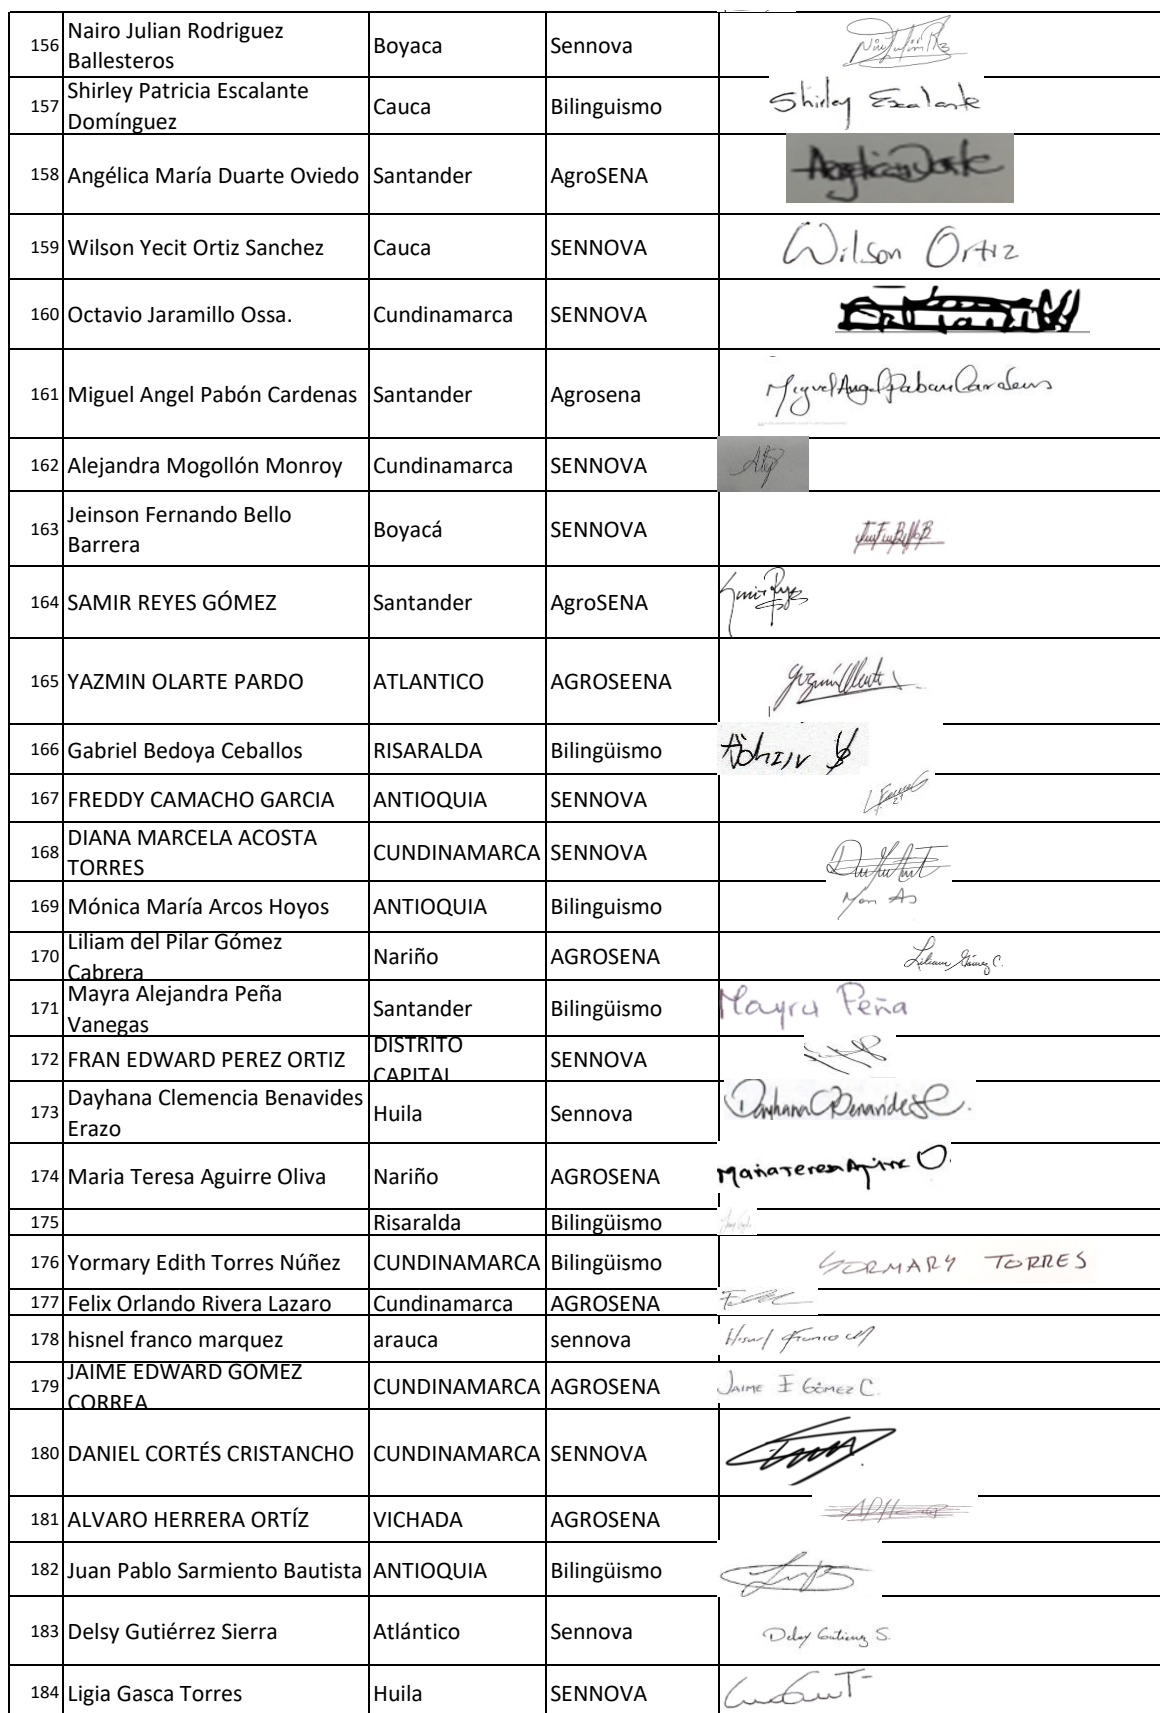 156 Nairo Julian Rodriguez Ballesteros Boyaca Sennova
157 Shirley Patricia Escalante Domínguez Cauca Bilinguismo Shirley Escalante
158 Angélica María Duarte Oviedo Santander AgroSENA
159 Wilson Yecit Ortiz Sanchez Cauca SENNOVA Wilson Ortiz
160 Octavio Jaramillo Ossa. Cundinamarca SENNOVA
161 Miguel Angel Pabón Cardenas Santander Agrosena Miguel Angel Pabon Cardenas
162 Alejandra Mogollón Monroy Cundinamarca SENNOVA
163 Jeinson Fernando Bello Barrera Boyacá SENNOVA
164 SAMIR REYES GÓMEZ Santander AgroSENA
165 YAZMIN OLARTE PARDO ATLANTICO AGROSEENA
166 Gabriel Bedoya Ceballos RISARALDA Bilingüismo
167 FREDDY CAMACHO GARCIA ANTIOQUIA SENNOVA
168 DIANA MARCELA ACOSTA TORRES CUNDINAMARCA SENNOVA
169 Mónica María Arcos Hoyos ANTIOQUIA Bilinguismo
170 Liliam del Pilar Gómez Cabrera Nariño AGROSENA Liliam Gómez C.
171 Mayra Alejandra Peña Vanegas Santander Bilingüismo Mayra Peña
172 FRAN EDWARD PEREZ ORTIZ DISTRITO CAPITAL SENNOVA
173 Dayhana Clemencia Benavides Erazo Huila Sennova
174 Maria Teresa Aguirre Oliva Nariño AGROSENA Maria Teresa Aguirre O.
175 Risaralda Bilingüismo
176 Yormary Edith Torres Núñez CUNDINAMARCA Bilingüismo YORMARY TORRES
177 Felix Orlando Rivera Lazaro Cundinamarca AGROSENA
178 hisnel franco marquez arauca sennova Hisnel Franco M
179 JAIME EDWARD GOMEZ CORREA CUNDINAMARCA AGROSENA JAIME E GÓMEZ C.
180 DANIEL CORTÉS CRISTANCHO CUNDINAMARCA SENNOVA
181 ALVARO HERRERA ORTÍZ VICHADA AGROSENA
182 Juan Pablo Sarmiento Bautista ANTIOQUIA Bilingüismo
183 Delsy Gutiérrez Sierra Atlántico Sennova Delsy Gutiérrez S.
184 Ligia Gasca Torres Huila SENNOVA